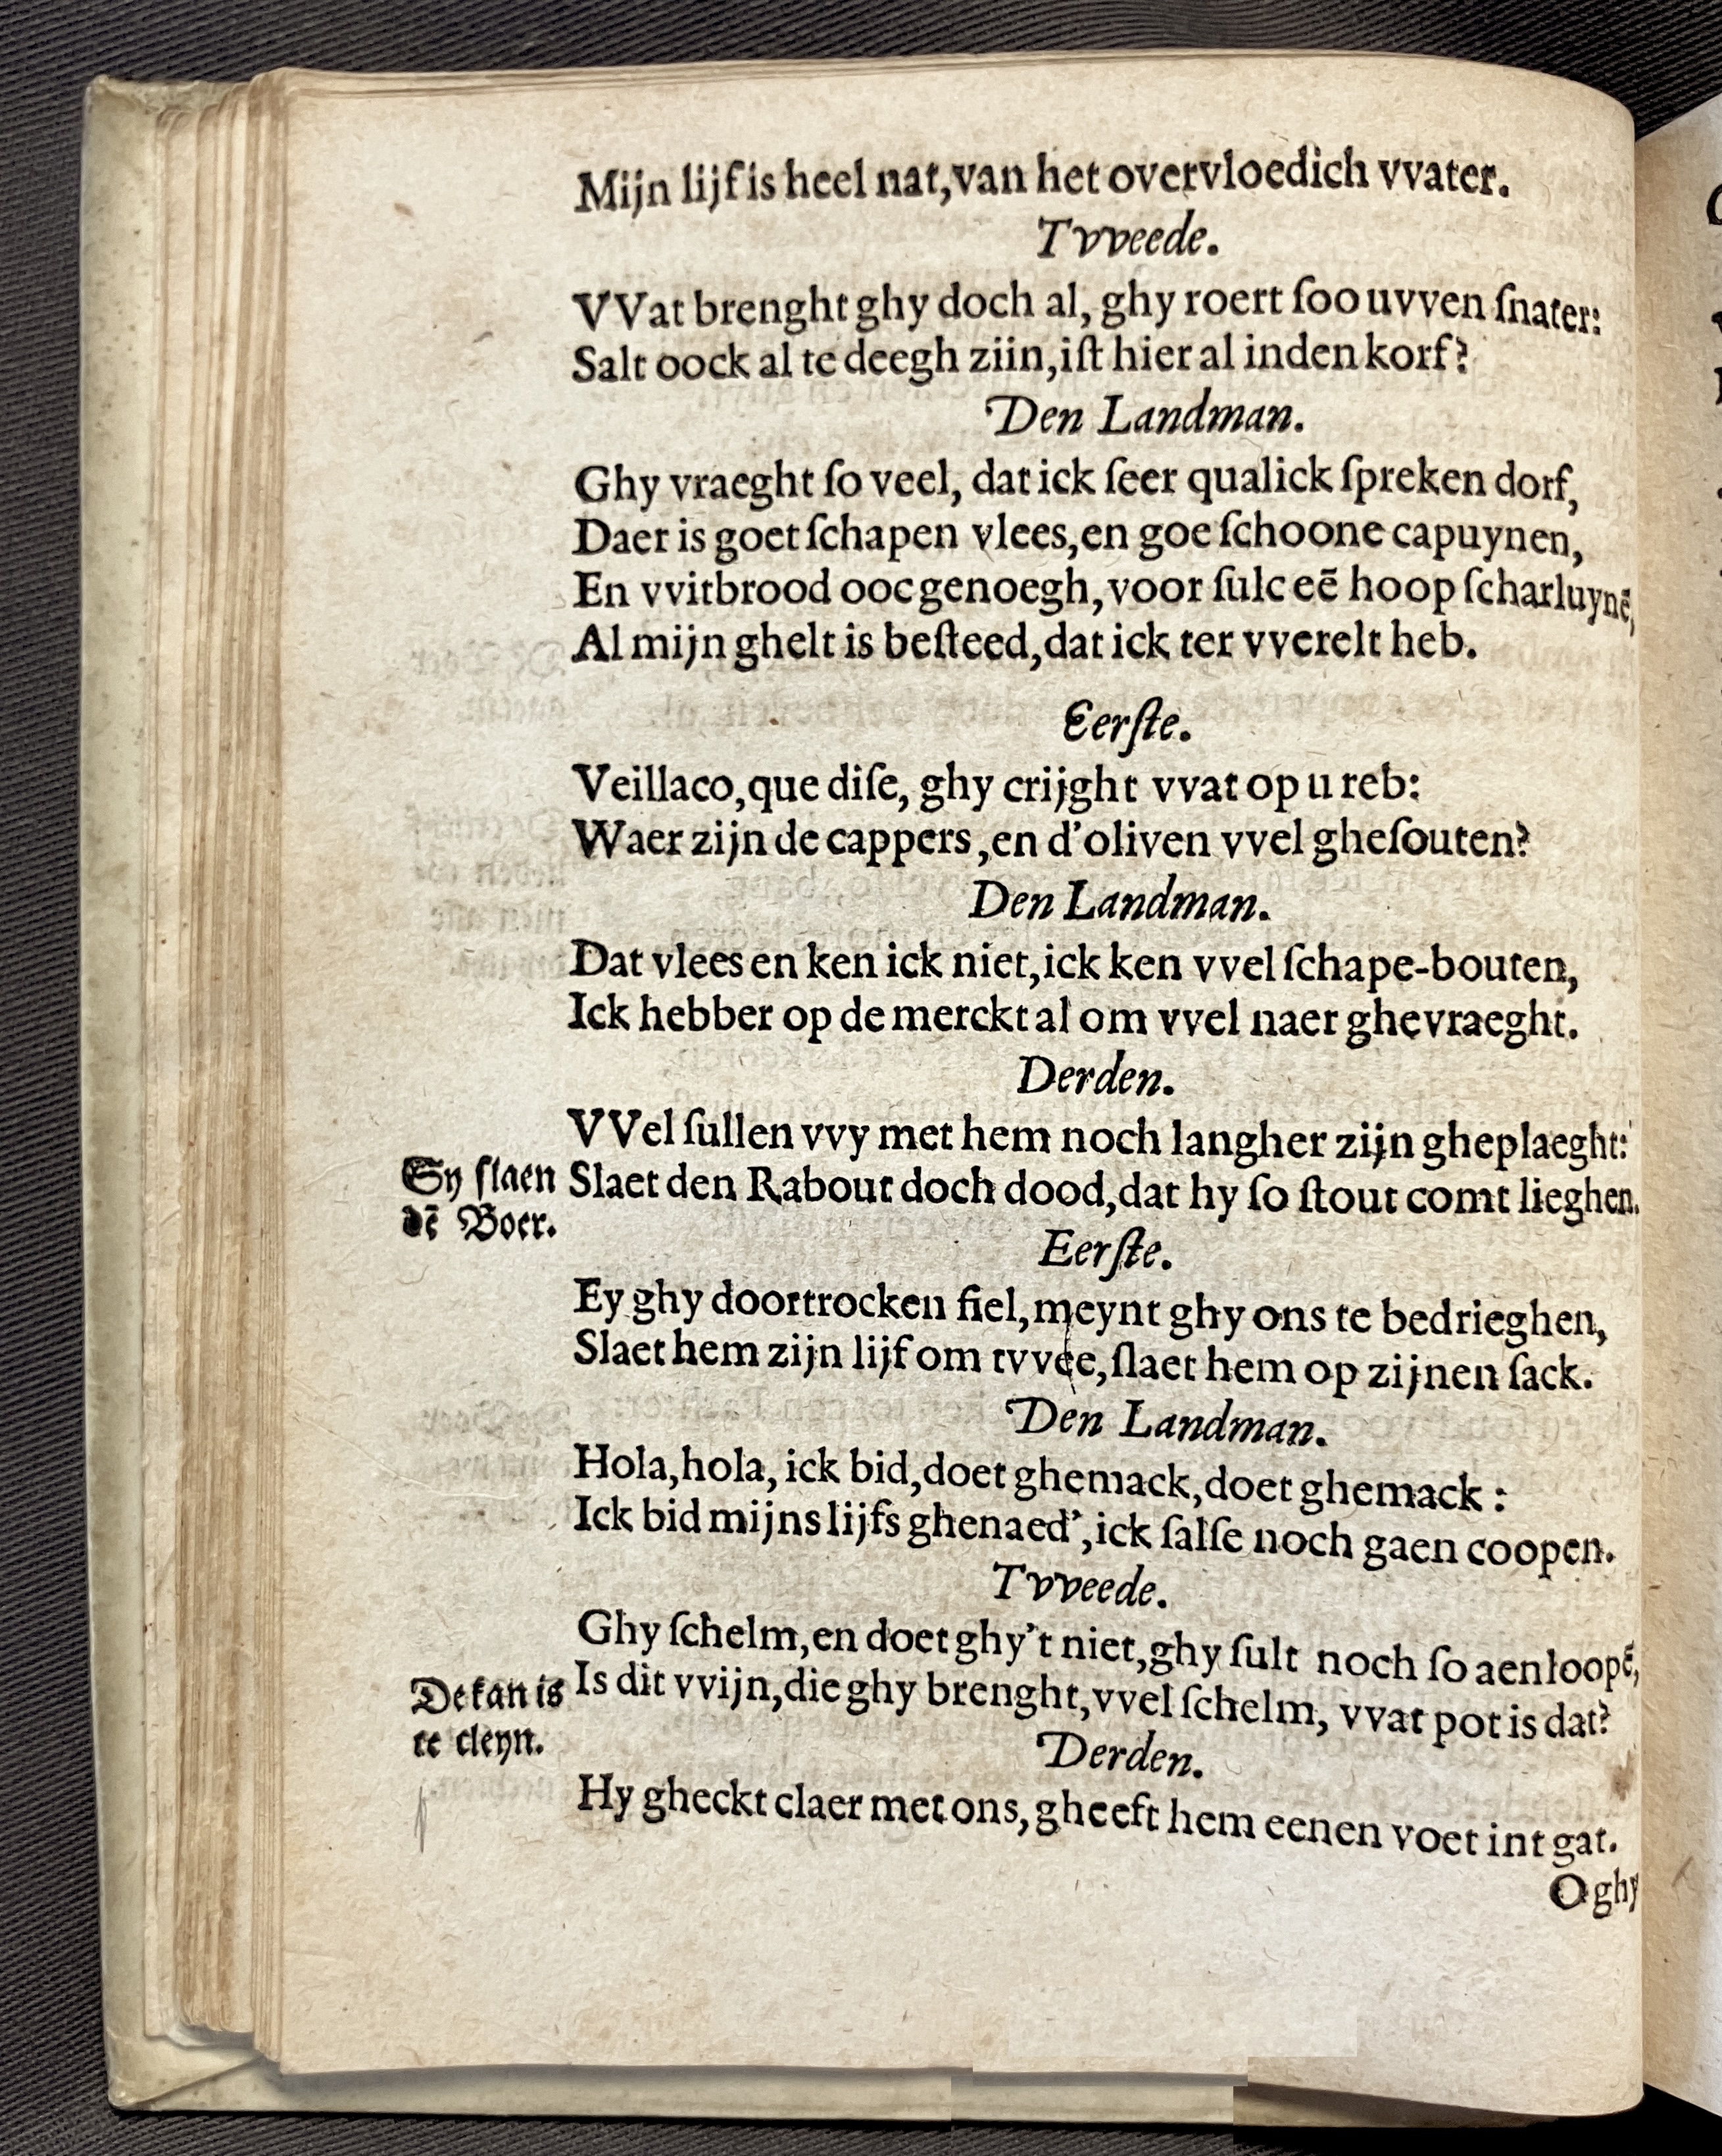 Mijn lijf is heel nat, van het overvloedich vvater.
Tvveede.
VVat brenght ghy doch al, ghy roert ſoo uvven ſnater:
Salt oock al te deegh ziin, iſt hier al inden korf?
Den Landman.
Ghy vraeght ſo veel, dat ick ſeer qualick ſpreken dorf,
Daer is goet ſchapen vlees, en goe ſchoone capuynen,
En vvitbrood ooc genoegh, voor ſulc eē hoop ſcharluynē,
Al mijn ghelt is beſteed, dat ick ter vverelt heb.
Eerſte.
Veillaco, que diſe, ghy crijght vvat op u reb:
Waer zijn de cappers, en d'oliven vvel gheſouten?
Den Landman.
Dat vlees en ken ick niet, ick ken vvel ſchape-bouten,
Ick hebber op de merckt al om vvel naer ghevraeght.
Derden.
VVel ſullen vvy met hem noch langher zijn gheplaeght:
Sy ſlaen
dē Boer.
Slaet den Rabout doch dood, dat hy ſo ſtout comt lieghen.
Eerſte.
Ey ghy doortrocken fiel, meynt ghy ons te bedrieghen,
Slaet hem zijn lijf om tvvee, ſlaet hem op zijnen ſack.
Den Landman.
Hola, hola, ick bid, doet ghemack, doet ghemack :
Ick bid mijns lijfs ghenaed', ick ſalſe noch gaen coopen.
Tvveede.
Ghy ſchelm, en doet ghy't niet, ghy ſult noch ſo aenloopē,
De kan is
te cleyn.
Is dit vvijn, die ghy brenght, vvel ſchelm, vvat pot is dat?
Derden.
Hy gheckt claer met ons, gheeft hem eenen voet int gat.
O ghy